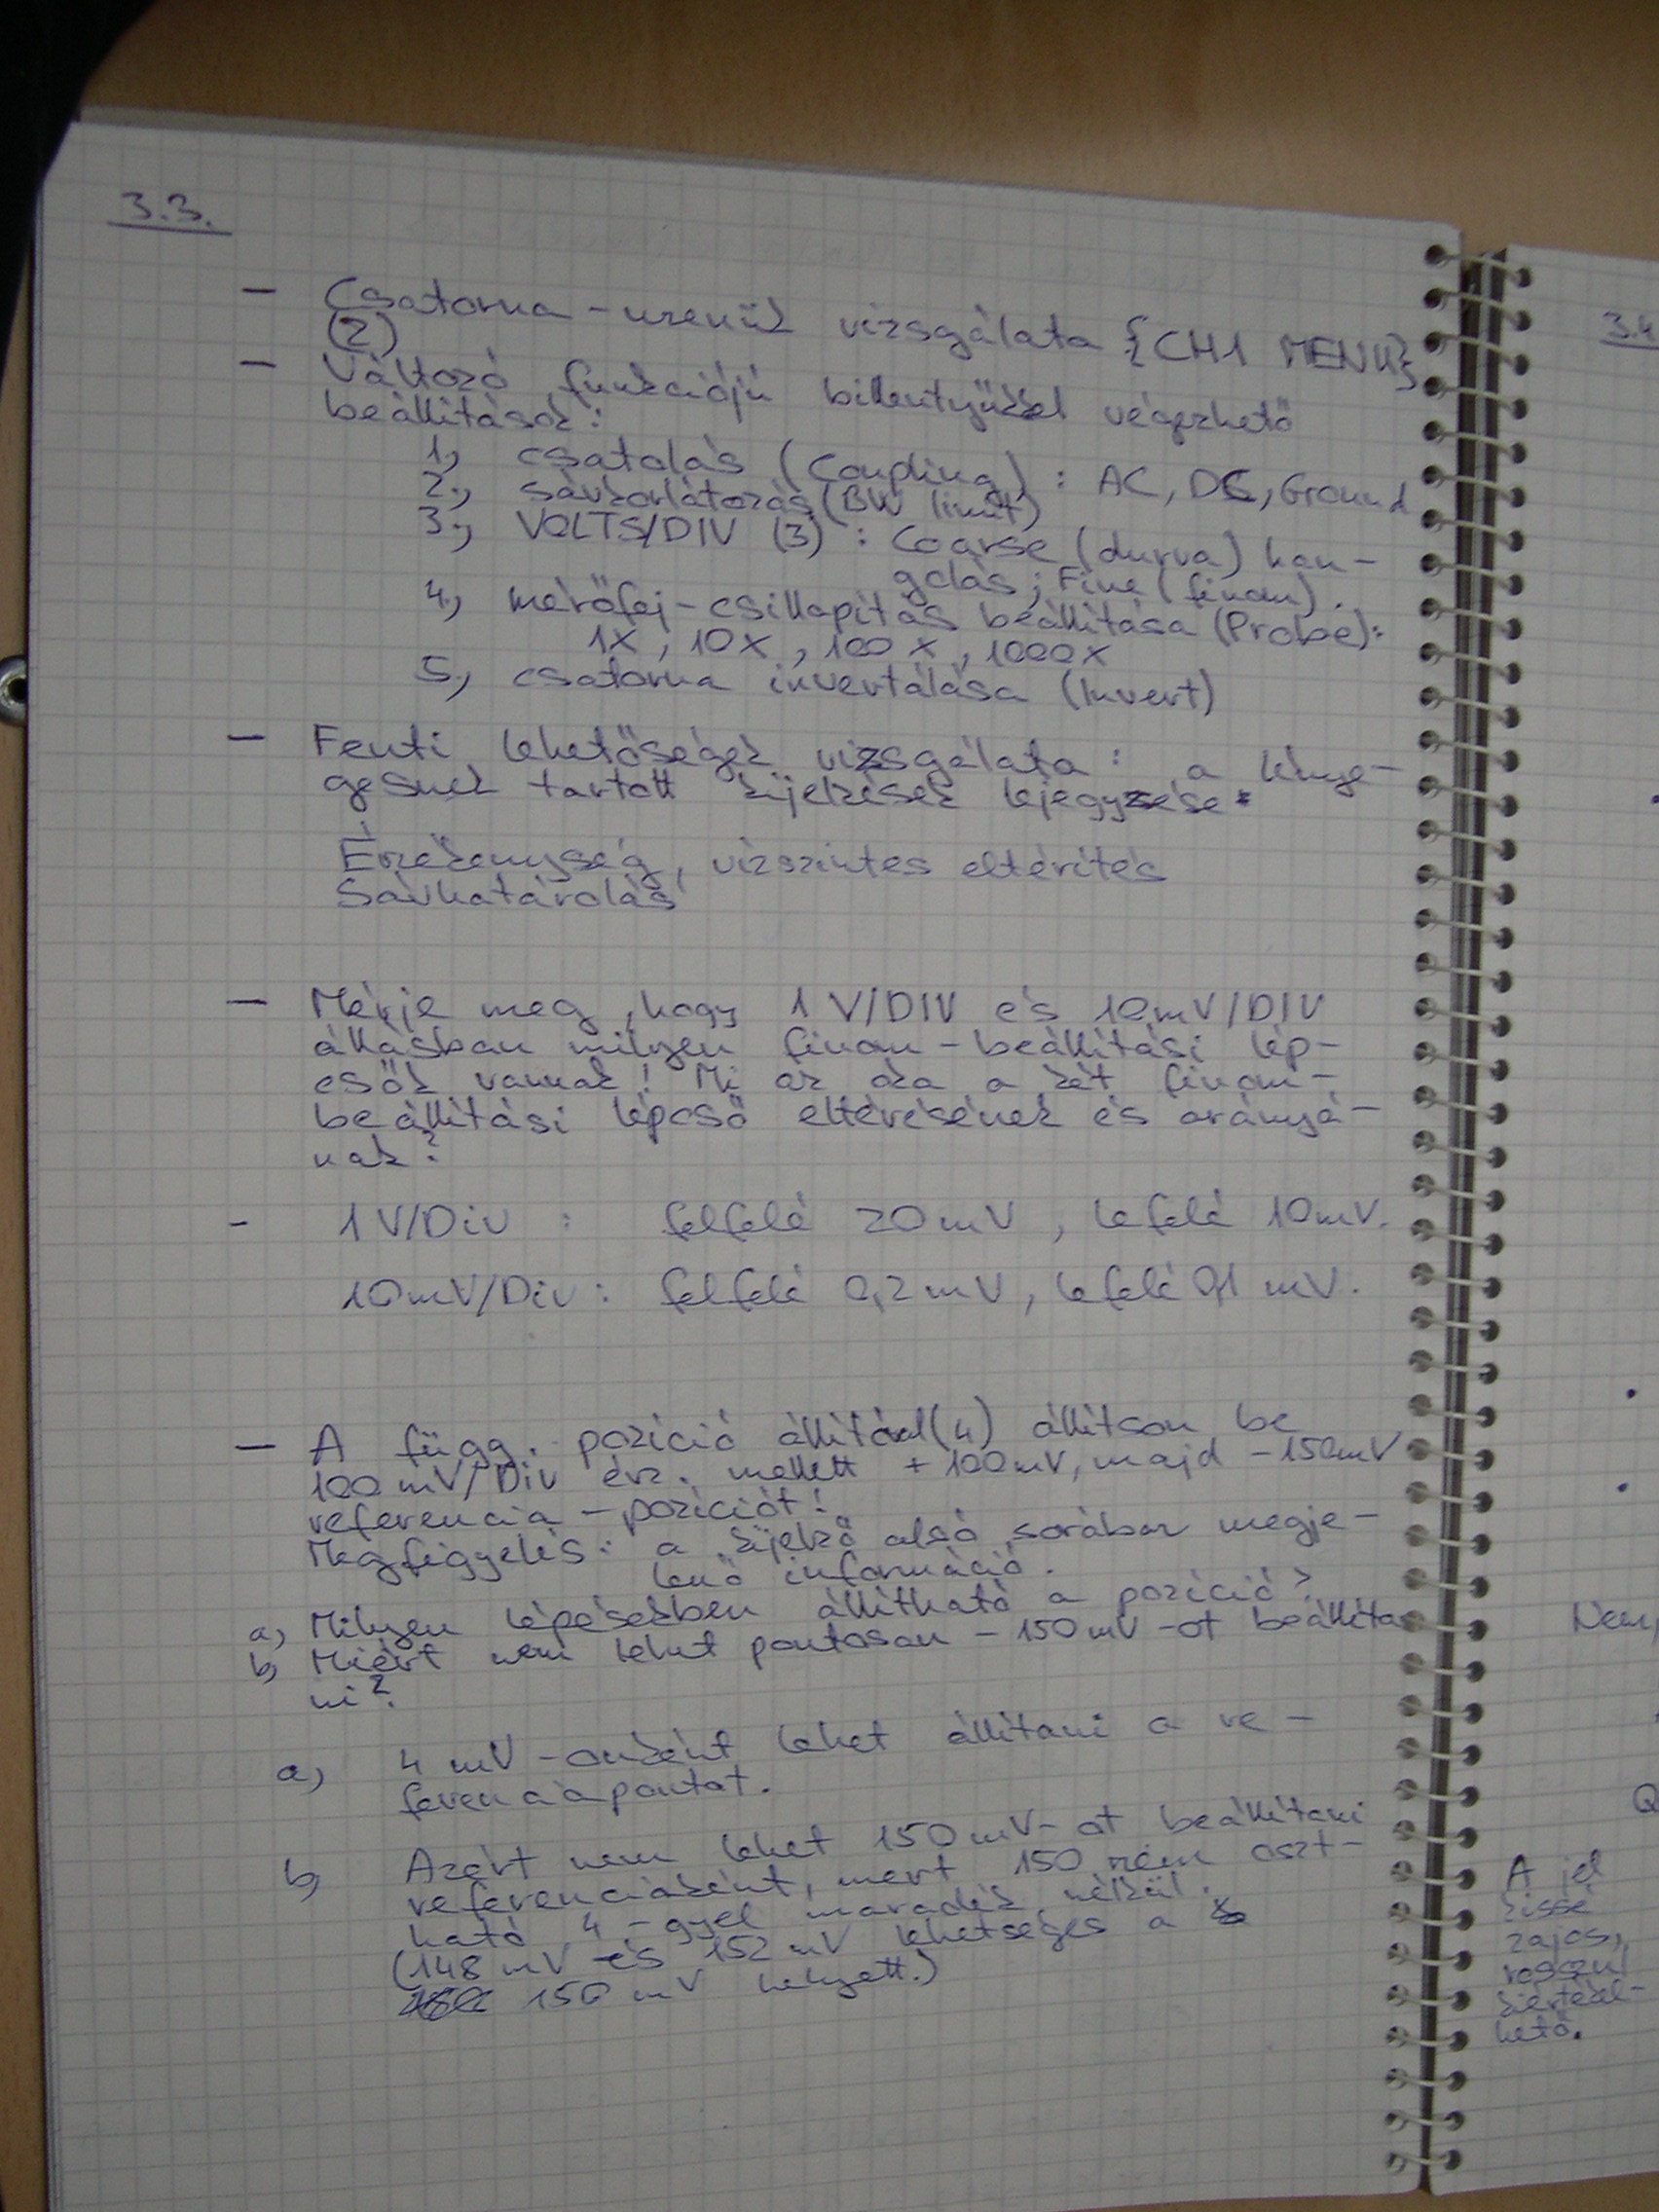 3.3.
- Csatorna-menük vizsgálata {CH1 MENU}
(2)
- Változó funkciójú billentyűkkel végezhető
beállítások:
1., csatolás (Coupling) : AC, DC, Ground
2., sávkorlátozás (BW limit)
3., VOLTS/DIV (3) : Coarse (durva) han-
golás; Fine (finom).
4., mérőfej-csillapítás beállítása (Probe):
1X, 10X, 100X, 1000X
5., csatorna invertálása (Invert)
- Fenti lehetőségek vizsgálata : a lénye-
gesnek tartott kijelzések lejegyzése:
Érzékenység, vízszintes eltérítés
Sávhatárolás
- Mérje meg, hogy 1 V/DIV és 10mV/DIV
állásban milyen finom-beállítási lép-
csők vannak! Mi az oka a két finom-
beállítási lépcső eltérésének és arányá-
nak?
- 1 V/Div : felfelé 20mV, lefelé 10mV.
10mV/Div : felfelé 0,2mV, lefelé 0,1 mV.
- A függ. pozíció állítóval (4) állítson be
100 mV/Div érz. mellett +100mV, majd -150mV
referencia-pozíciót!
Megfigyelés: a kijelző alsó sorában megje-
lenő információ.
a, Milyen lépésekben állítható a pozíció?
b, Miért nem lehet pontosan -150mV-ot beállíta
ni?
a, 4 mV-onként lehet állítani a re-
ferenciapontot.
b, Azért nem lehet 150mV-ot beállítani
referenciaként, mert 150 nem oszt-
ható 4-gyel maradék nélkül.
(148 mV és 152 mV lehetséges a
150 mV helyett.)
3.4
Nem,
Q
A jel
kissé
zajos,
rosszul
kiértékel-
hető.